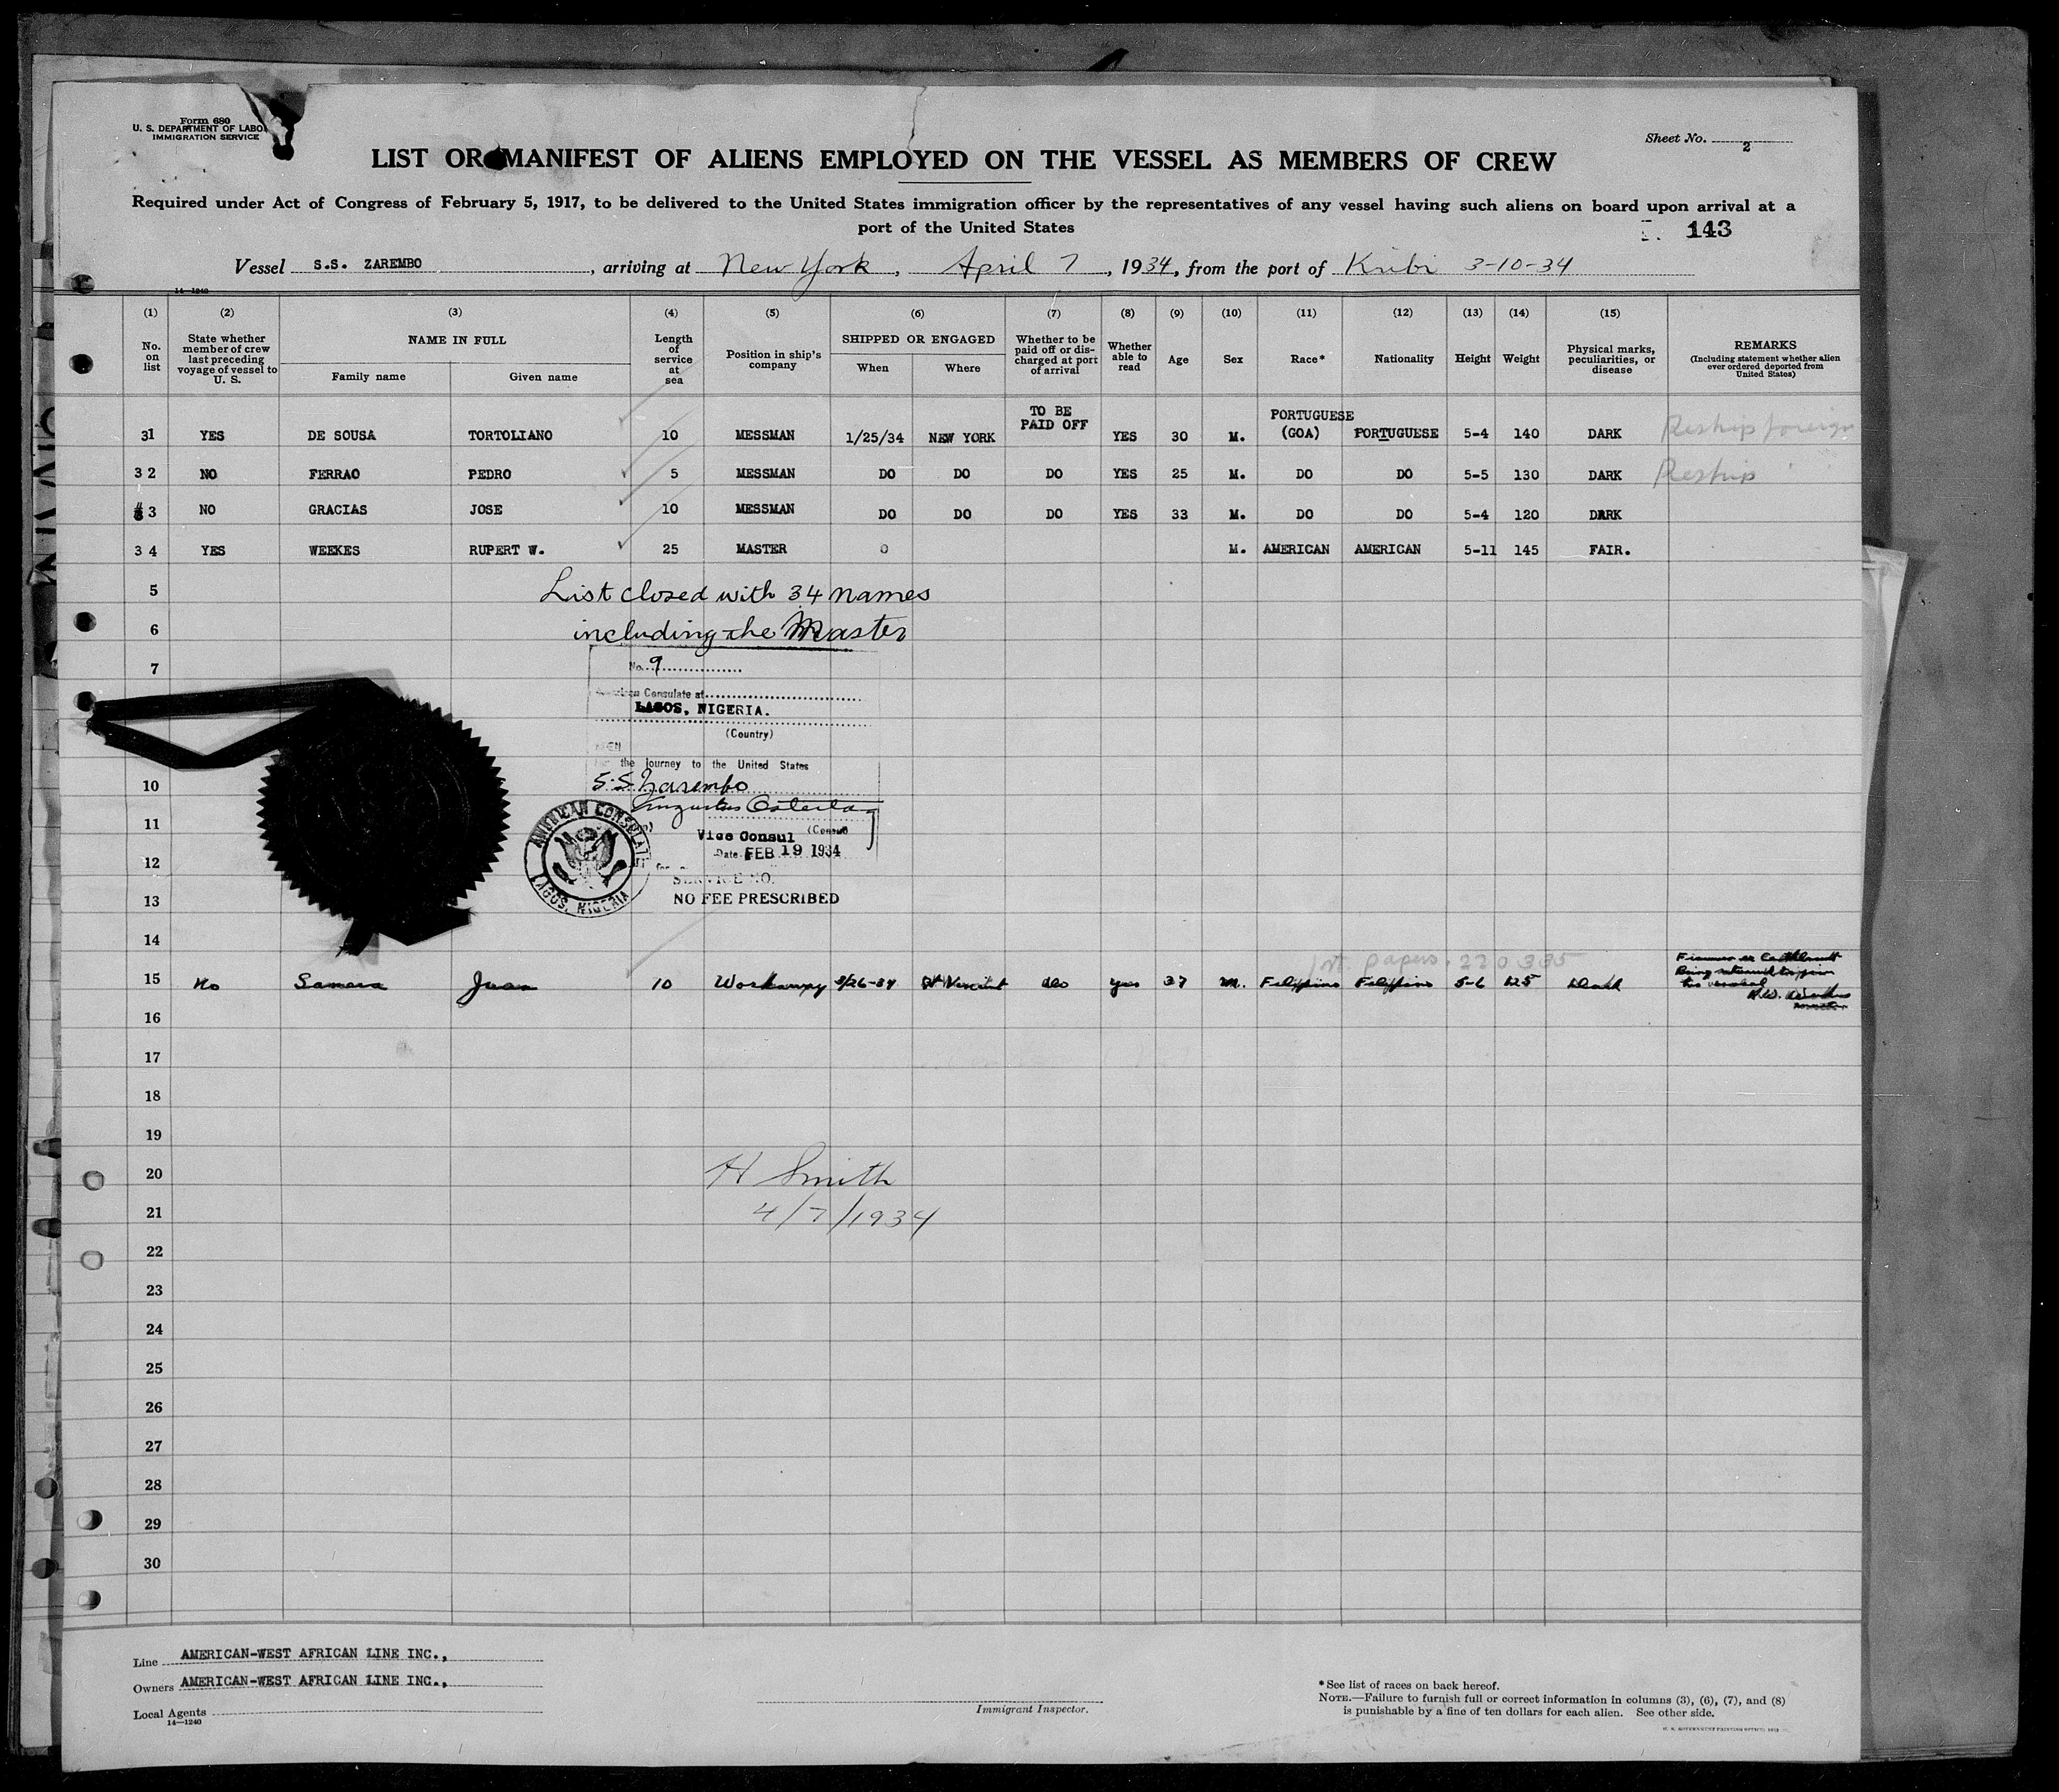 Form 680
U. S. DEPARTMENT OF LABOR
IMMIGRATION SERVICE
Sheet No. 2
LIST OR MANIFEST OF ALIENS EMPLOYED ON THE VESSEL AS MEMBERS OF CREW
Required under Act of Congress of February 5, 1917, to be delivered to the United States immigration officer by the representatives of any vessel having such aliens on board upon arrival at a
port of the United States
143
Vessel S.S. ZAREMBO, arriving at New York, April 7, 1934, from the port of Kribi 3-10-34
14—1240
(1) (2) (3) (4) (5) (6) (7) (8) (9) (10) (11) (12) (13) (14) (15)
No. on list
State whether member of crew last preceding voyage of vessel to U. S.
NAME IN FULL
Family name
Given name
Length of service at sea
Position in ship's company
SHIPPED OR ENGAGED
When
Where
Whether to be paid off or discharged at port of arrival
Whether able to read
Age
Sex
Race*
Nationality
Height
Weight
Physical marks, peculiarities, or disease
REMARKS
(Including statement whether alien ever ordered deported from United States)
31 YES DE SOUSA TORTOLIANO 10 MESSMAN 1/25/34 NEW YORK TO BE PAID OFF YES 30 M. PORTUGUESE (GOA) PORTUGUESE 5-4 140 DARK Reship foreign
32 NO FERRAO PEDRO 5 MESSMAN DO DO DO YES 25 M. DO DO 5-5 130 DARK Reship
33 NO GRACIAS JOSE 10 MESSMAN DO DO DO YES 33 M. DO DO 5-4 120 DARK
34 YES WEEKES RUPERT W. 25 MASTER M. AMERICAN AMERICAN 5-11 145 FAIR.
5 List closed with 34 names
6 including the Master
7
No. 9
American Consulate at
LAGOS, NIGERIA.
(Country)
the journey to the United States
10 S.S. Zarembo
11
Vice Consul (Consul)
12
Date FEB 19 1934
AMERICAN CONSULATE
LAGOS, NIGERIA
SERVICE NO.
13
NO FEE PRESCRIBED
14
1st papers. 220335
15 No Samera Juan 10 Workaway 3/26-34 St Vincent do yes 37 M. Filipino Filipino 5-6 125
16
17
18
19
20 H Smith
21 4/7/1934
22
23
24
25
26
27
28
29
30
Line AMERICAN-WEST AFRICAN LINE INC.,
Owners AMERICAN-WEST AFRICAN LINE INC.,
Local Agents
14—1240
Immigrant Inspector.
*See list of races on back hereof.
NOTE.—Failure to furnish full or correct information in columns (3), (6), (7), and (8)
is punishable by a fine of ten dollars for each alien. See other side.